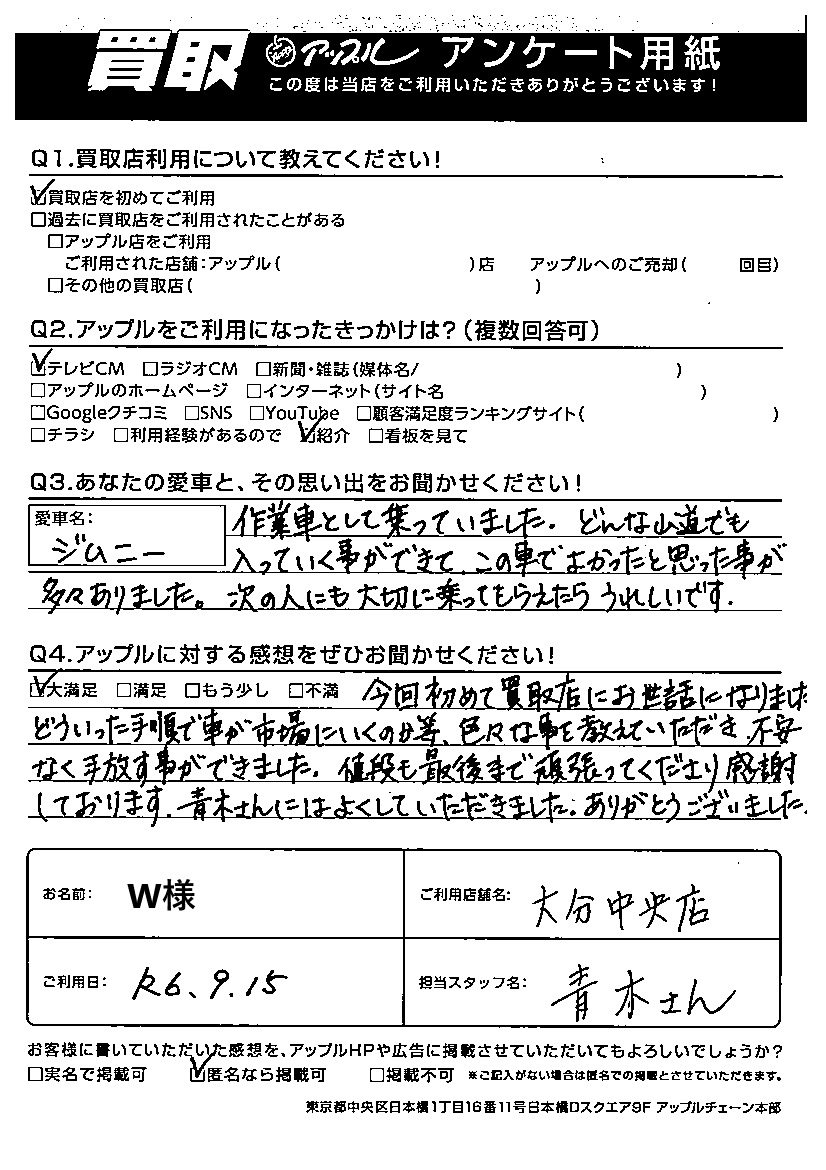 買取 アップル アンケート用紙
この度は当店をご利用いただきありがとうございます！
Q1.買取店利用について教えてください！
☑買取店を初めてご利用
□過去に買取店をご利用されたことがある
□アップル店をご利用
ご利用された店舗：アップル（ ）店 アップルへのご売却（ 回目）
□その他の買取店（ ）
Q2.アップルをご利用になったきっかけは？（複数回答可）
☑テレビCM □ラジオCM □新聞・雑誌（媒体名/ ）
□アップルのホームページ □インターネット（サイト名 ）
□Googleクチコミ □SNS □YouTube □顧客満足度ランキングサイト（ ）
□チラシ □利用経験があるので ☑紹介 □看板を見て
Q3.あなたの愛車と、その思い出をお聞かせください！
愛車名：
ジムニー
作業車として乗っていました。どんな山道でも
入っていく事ができて、この車でよかったと思った事が
多々ありました。次の人にも大切に乗ってもらえたらうれしいです。
Q4.アップルに対する感想をぜひお聞かせください！
☑大満足 □満足 □もう少し □不満 今回初めて買取店にお世話になりました
どういった手順で車が市場にいくのか等、色々な事を教えていただき不安
なく手放す事ができました。値段も最後まで頑張ってくださり感謝
しております。青木さんにはよくしていただきました。ありがとうございました。
お名前： W様
ご利用店舗名： 大分中央店
ご利用日： R6.9.15
担当スタッフ名： 青木さん
お客様に書いていただいた感想を、アップルHPや広告に掲載させていただいてもよろしいでしょうか？
□実名で掲載可 ☑匿名なら掲載可 □掲載不可 ※ご記入がない場合は匿名での掲載とさせていただきます。
東京都中央区日本橋1丁目16番11号日本橋Dスクエア9F アップルチェーン本部